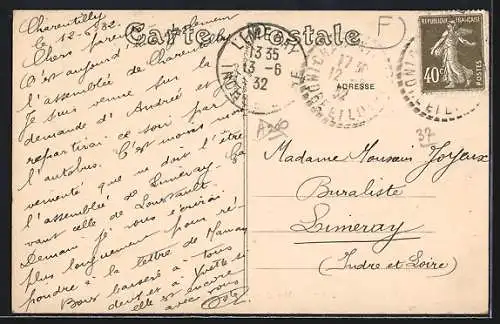 Charentilly
le 12-6-32
Carte Postale
Chers parents et Clément
C'est aujourd'hui
l'assemblée de Charentilly
Je suis venue sur la
demande d'Andrée et je
repartirai ce soir par
l'autobus. C'est moins mou-
vementé que ne doit l'être
l'assemblée de Limeray. Ça
vaut celle de
Demain je vous écrirai
plus longuement pour ré-
pondre à la lettre de Maman
Bons baisers à tous
deux et à Yvette si
elle est encore
avec vous
LIMERAY
13 35
13 - 6
32
INDRE-ET-LOIRE
17 30
12
32
INDRE-ET-LOIRE
F
ADRESSE
REPUBLIQUE FRANÇAISE
40c
POSTES
A206
37
Madame Joyeux
Buraliste
Limeray
(Indre et Loire)